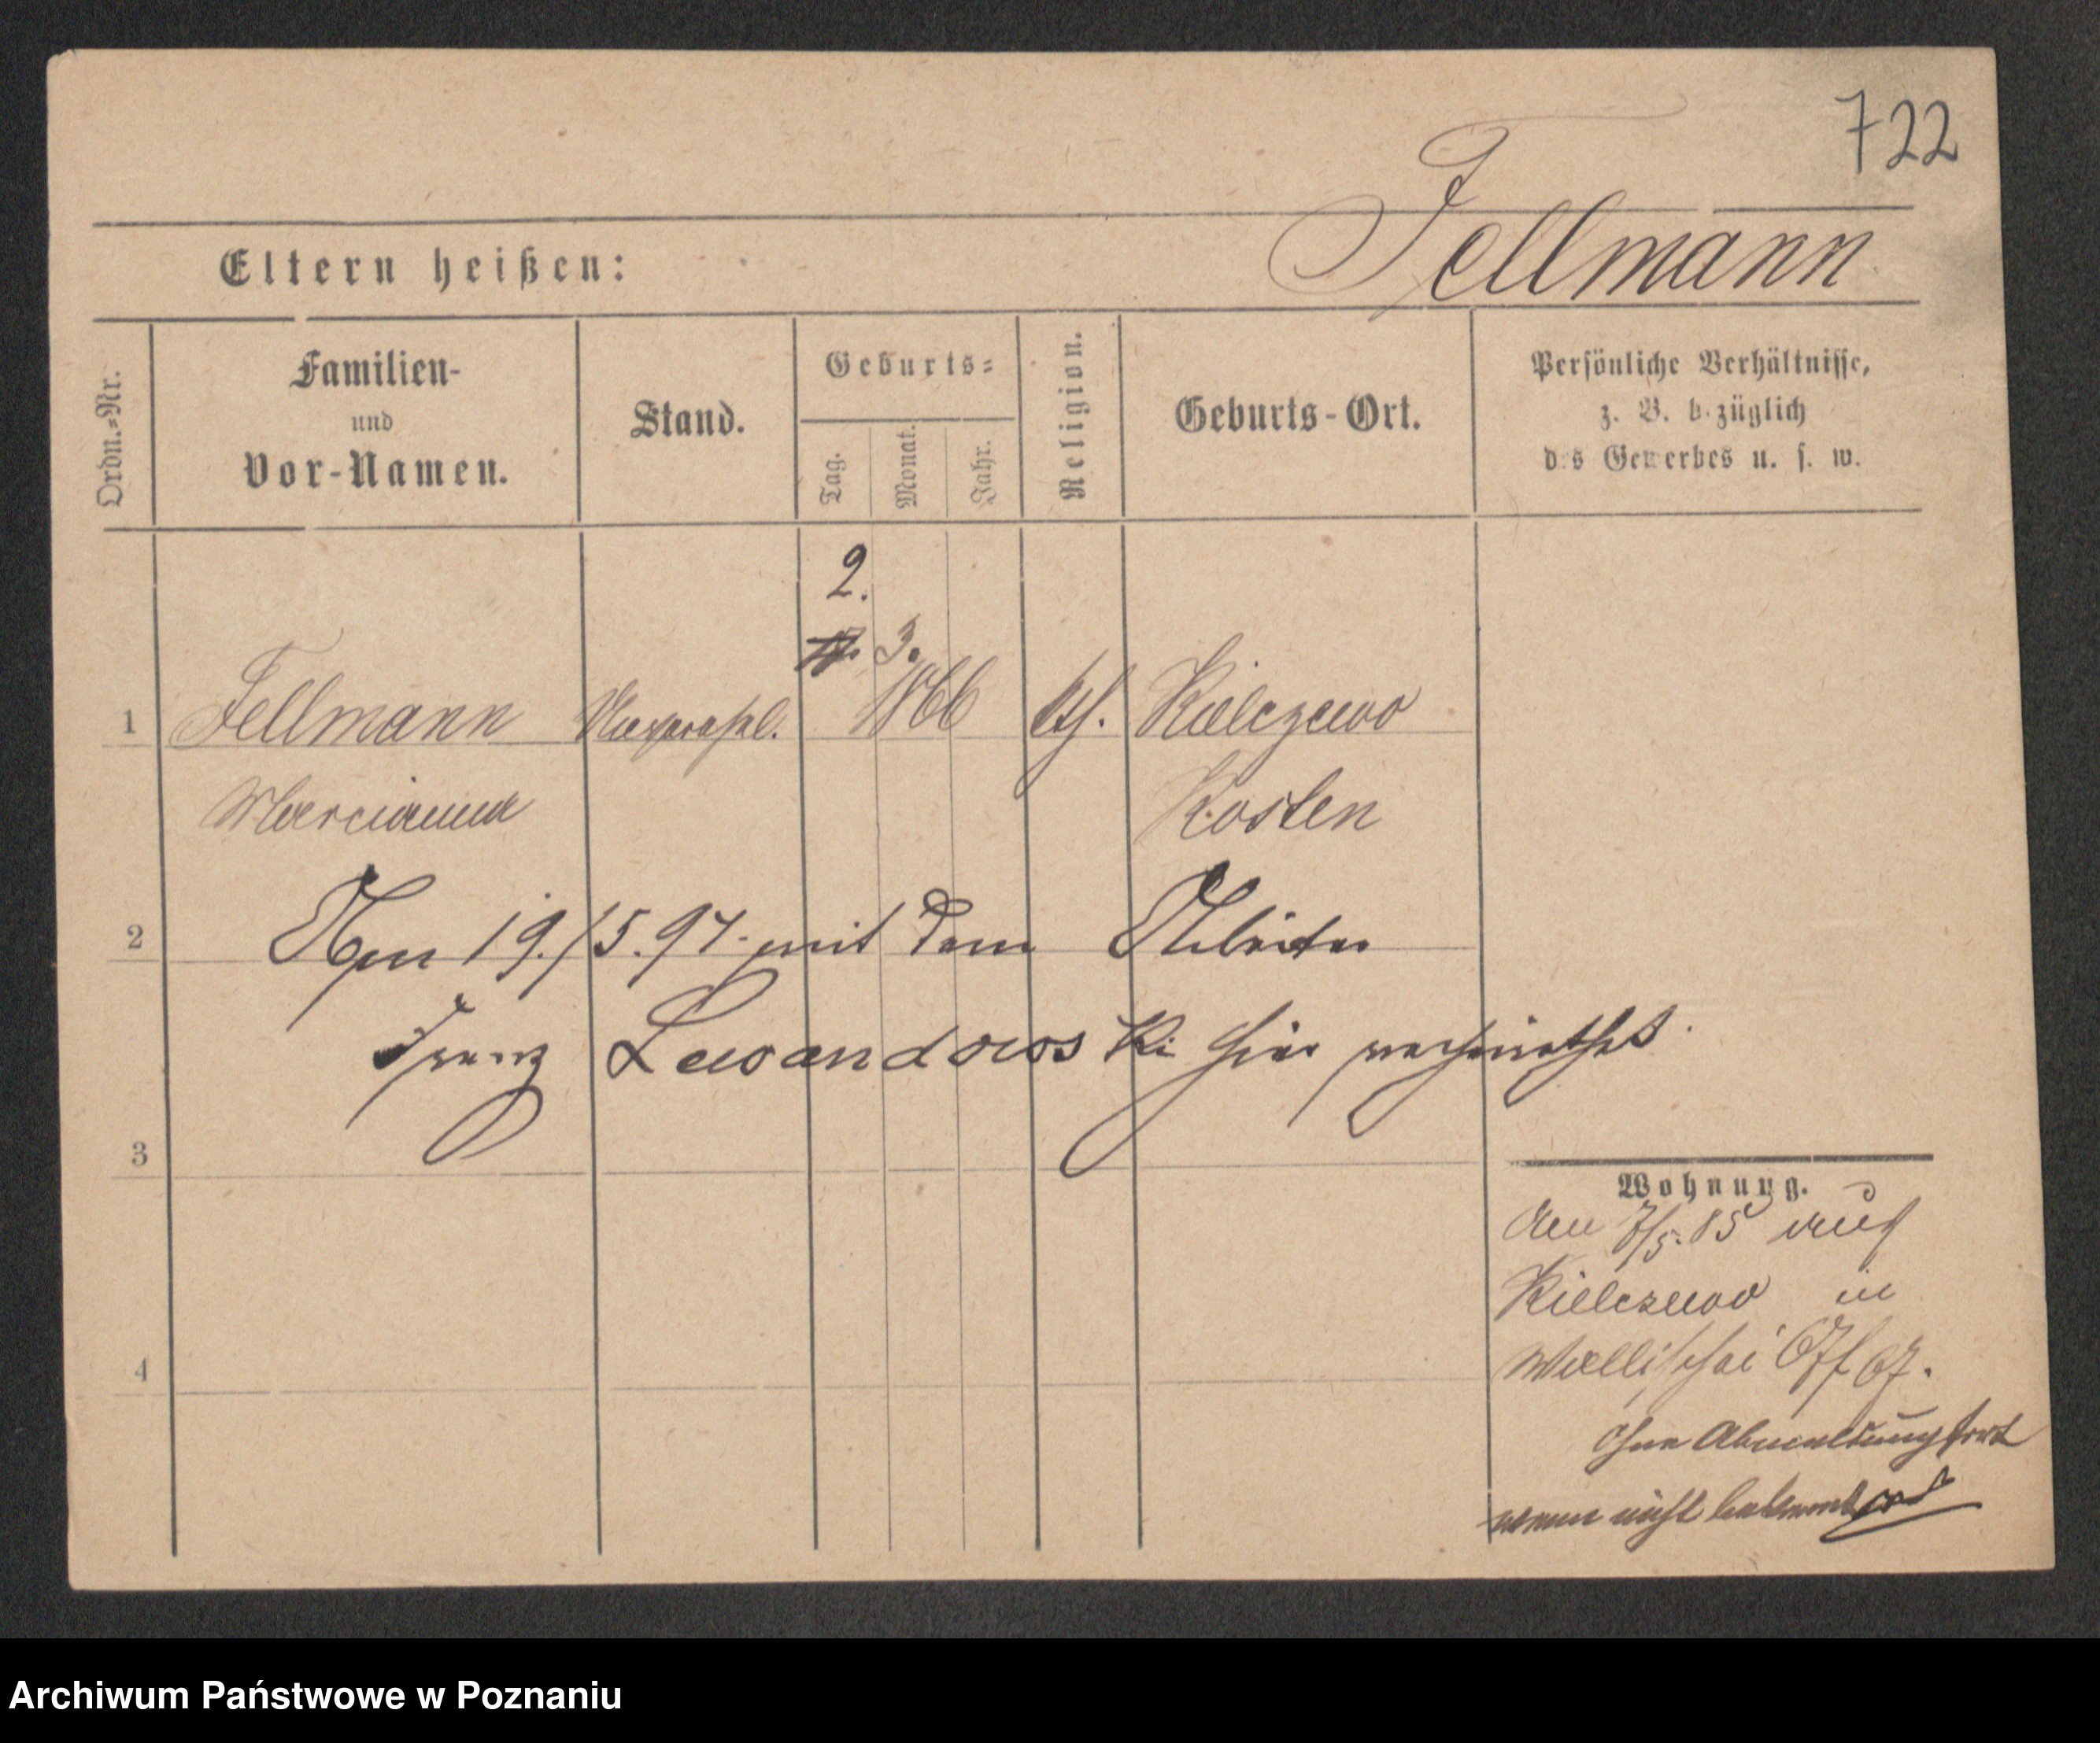 722
Fellmann
Eltern heißen:
Ordn.=Nr.
Familien-
und
Vor-Namen.
Stand.
Geburts=
Tag.
Monat.
Jahr.
Religion.
Geburts-Ort.
Persönliche Verhältnisse,
z. B. bezüglich
des Gewerbes u. s. w.
2.
3.
1 Fellmann 1866 kth. Kielczewo
Marcianna Kosten
2 Am 19./5.97. mit dem Arbeiter
Franz Lewandowski hier verheirathet.
3
Wohnung.
den 7/5.85 aus
Kielczewo in
Wallischei 67 f 67.
4
ohne Abmeldung fort
wenn nicht bekannt
Archiwum Państwowe w Poznaniu